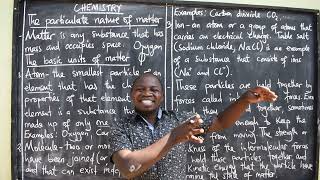 CHEMISTRY
The particulate nature of matter
Matter is any substance that has
mass and occupies space. Oxygen
The basic units of matter
Atom - the smallest particle of an
element that has the ch
properties of that element
element is a substance tha
made up of only one
Examples: Oxygen Car
Molecule - two or mo
have been joined (or
and that can exist
Examples: Carbon dioxide CO₂
Ion - an atom or a group of atoms that
carries an electrical charge. Table salt
(Sodium chloride, NaCl) is an example
of a substance that consist of ions
(Na⁺ and Cl⁻).
These particles are held together by
forces called in forces. Even
sometimes
enough to keep the
from moving. The strength or
kness of the intermolecular forces
hold these particles together and
Kinetic energy that the particle have
mine the state of matter.